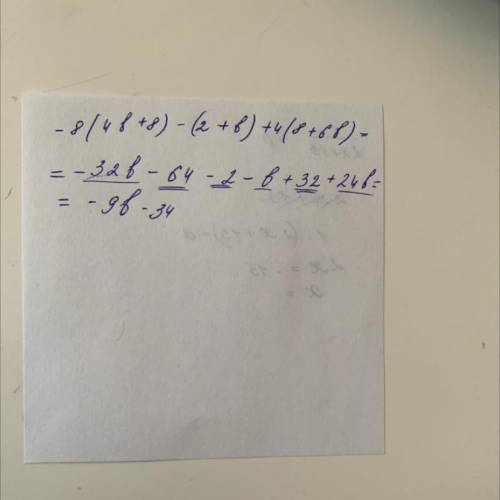 -8(4b+8)-(2+b)+4(8+6b)=
= -32b - 64 - 2 - b + 32 + 24b =
= -9b - 34